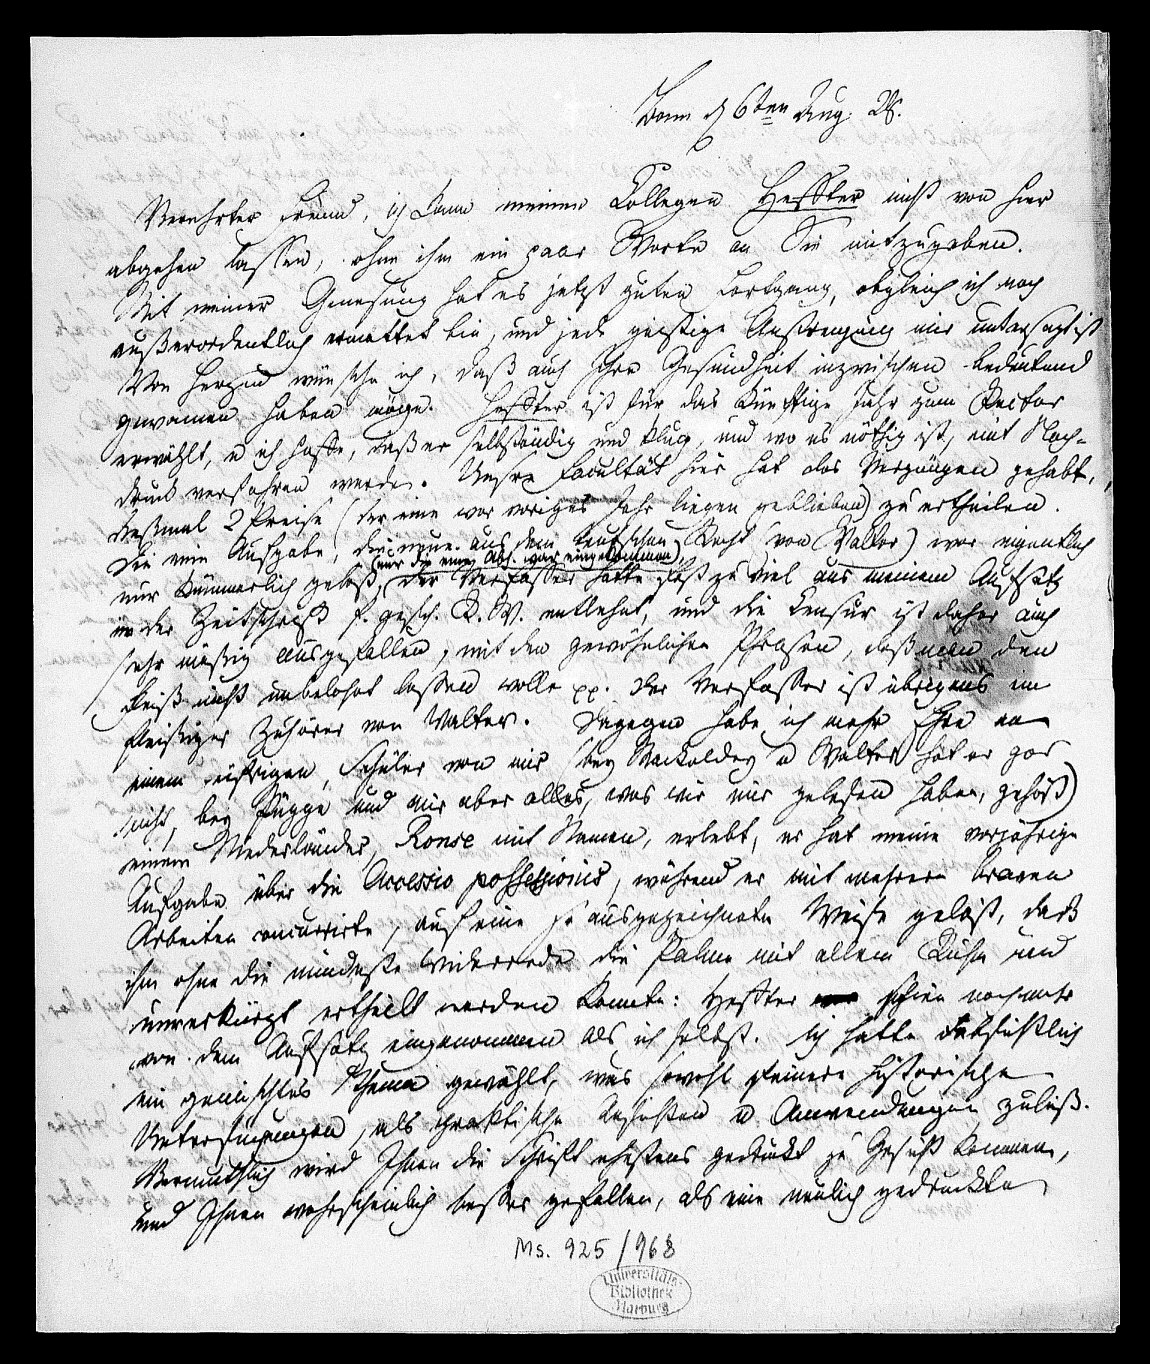 Bonn d 6ten Aug. 28.
Verehrter Freund, ich kann meinen Collegen Heffter nicht von hier
abgehen lassen, ohne ihm ein paar Worte an Sie mitzugeben.
Mit meiner Genesung hat es jetzt guten Fortgang, obgleich ich noch
außerordentlich ermattet bin, und jede geistige Anstrengung mir untersagt ist
Von Herzen wünsche ich, daß auch Ihre Gesundheit inzwischen bedeutend
gewonnen haben möge. Heffter ist für das künftige Jahr zum Rector
erwählt, u ich hoffe, daß er selbständig und klug, und wo es nöthig ist, mit Nach-
druck verfahren werde. Unsre Facultät hier hat das Vergnügen gehabt,
deßmal 2 Preise (der eine war voriges Jahr liegen geblieben) zu ertheilen.
Die eine Aufgabe, die neue aus dem teutschen Recht von Walter) war eigentlich
(nur die einzige Abh. war eingekommen)
nur kümmerlich gelöst, der Verfasser hatte fast zu viel aus meinem Aufsatz
in der Zeitschrift f. gesch. R. W. entlehnt, und die Censur ist daher auch
sehr mäßig ausgefallen, mit den gewöhnlichen Phrasen, daß man den
Fleiß nicht unbelohnt lassen wolle pp. Der Verfasser ist übrigens ein
fleißiger Zuhörer von Walter. Dagegen habe ich mehr Ehre an
einem eifrigen Schüler von mir (bey Mackeldey u Walter hat er gar
nicht, bey Pugge und mir aber alles, was wir nur gelesen haben, gehört)
einem Niederländer, Ronse mit Namen, erlebt, er hat meine vorjährige
Aufgabe über die Accessio possessionis, während er mit mehrern braven
Arbeiten concurrirte, auf eine so ausgezeichnete Weise gelöst, daß
ihm ohne die mindeste Widerrede die Palme mit allem Ruhm und
unverkürzt ertheilt werden konnte: Heffter schien noch mehr
von dem Aufsatz eingenommen als ich selbst. Ich hatte absichtlich
ein gemischtes Thema gewählt, was sowohl feinere historische
Untersuchungen, als praktische Ansichten u Anwendungen zuließ.
Vermuthlich wird Ihnen die Schrift ehestens gedruckt zu Gesicht kommen,
und Ihnen wahrscheinlich besser gefallen, als eine neulich gedruckte
Ms. 925/968
Universitäts-
Bibliothek
Marburg